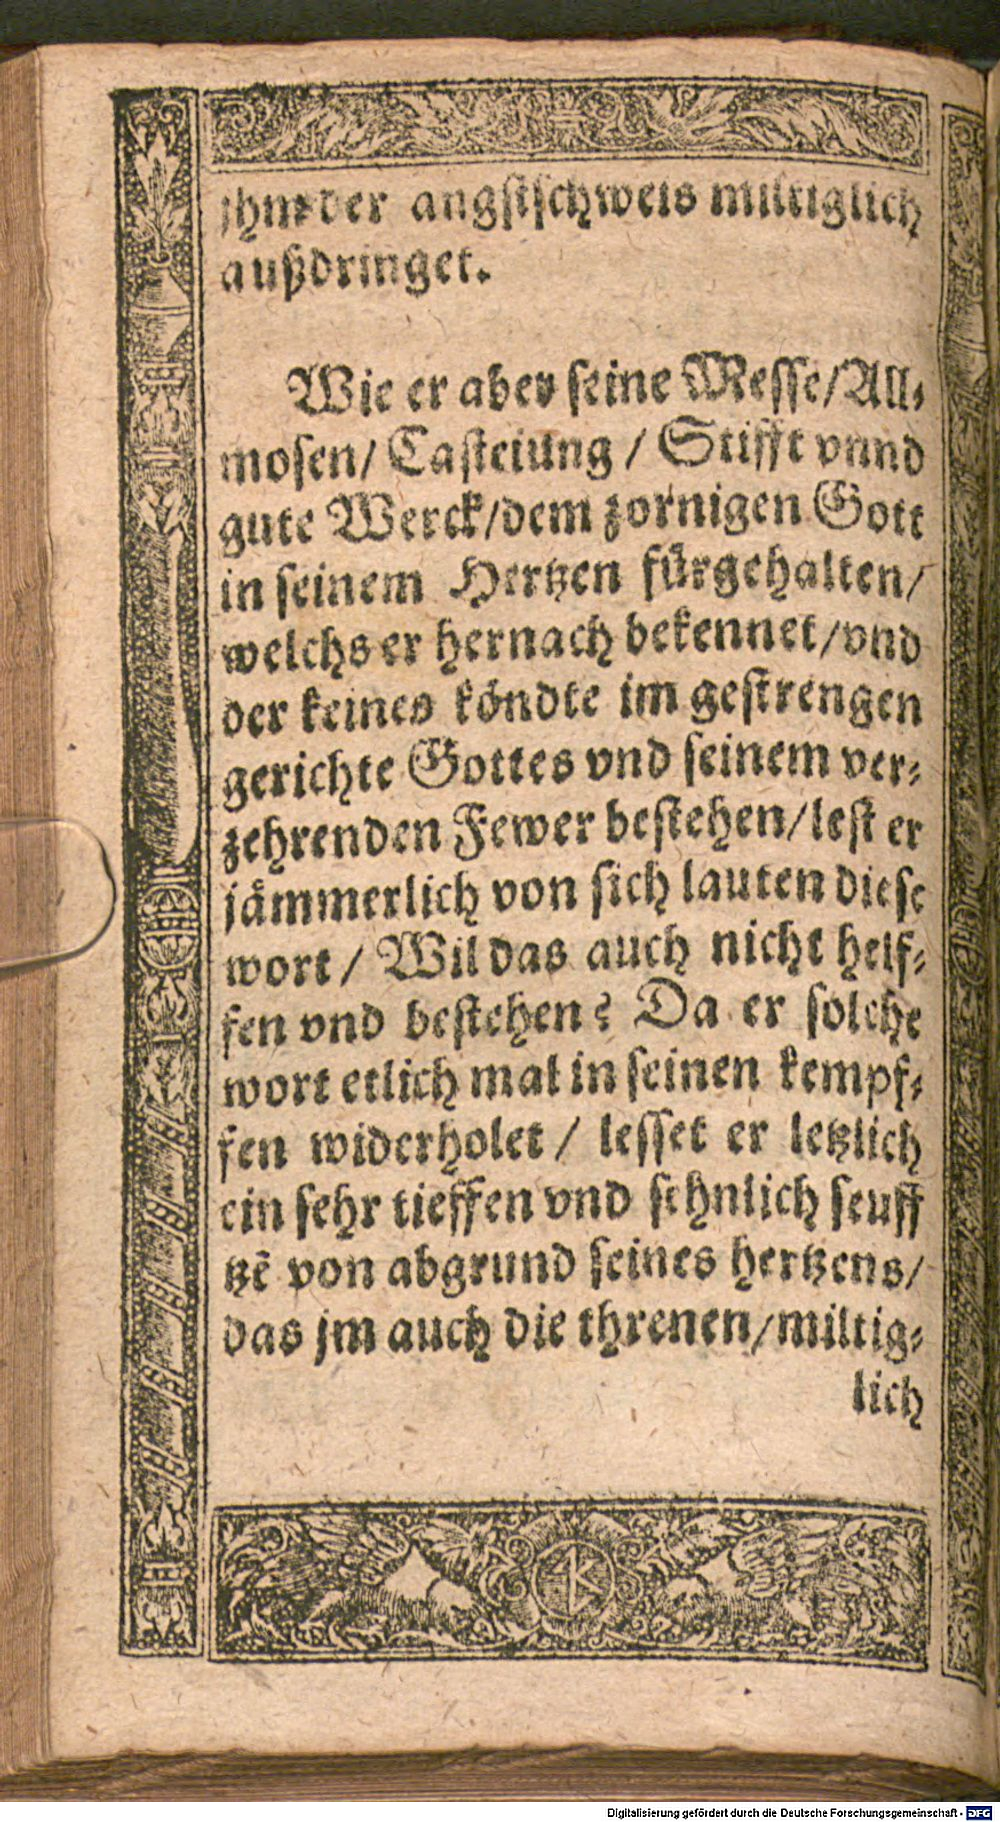 jhm der angstschweis miltiglich
außdringet.
Wie er aber seine Messe/All⸗
mosen/ Casteiung / Stifft vnnd
gute Werck/dem zornigen Gott
in seinem Hertzen fürgehalten/
welchs er hernach bekennet/vnd
der keines köndte im gestrengen
gerichte Gottes vnd seinem ver⸗
zehrenden Fewer bestehen/lest er
jämmerlich von sich lauten diese
wort / Wil das auch nicht helf⸗
fen vnd bestehen? Da er solche
wort etlich mal in seinen kempf⸗
fen widerholet / lesset er letzlich
ein sehr tieffen vnd sehnlich seuff
tzē von abgrund seines hertzens/
das jm auch die threnen/miltig⸗
lich
Digitalisierung gefördert durch die Deutsche Forschungsgemeinschaft - DFG